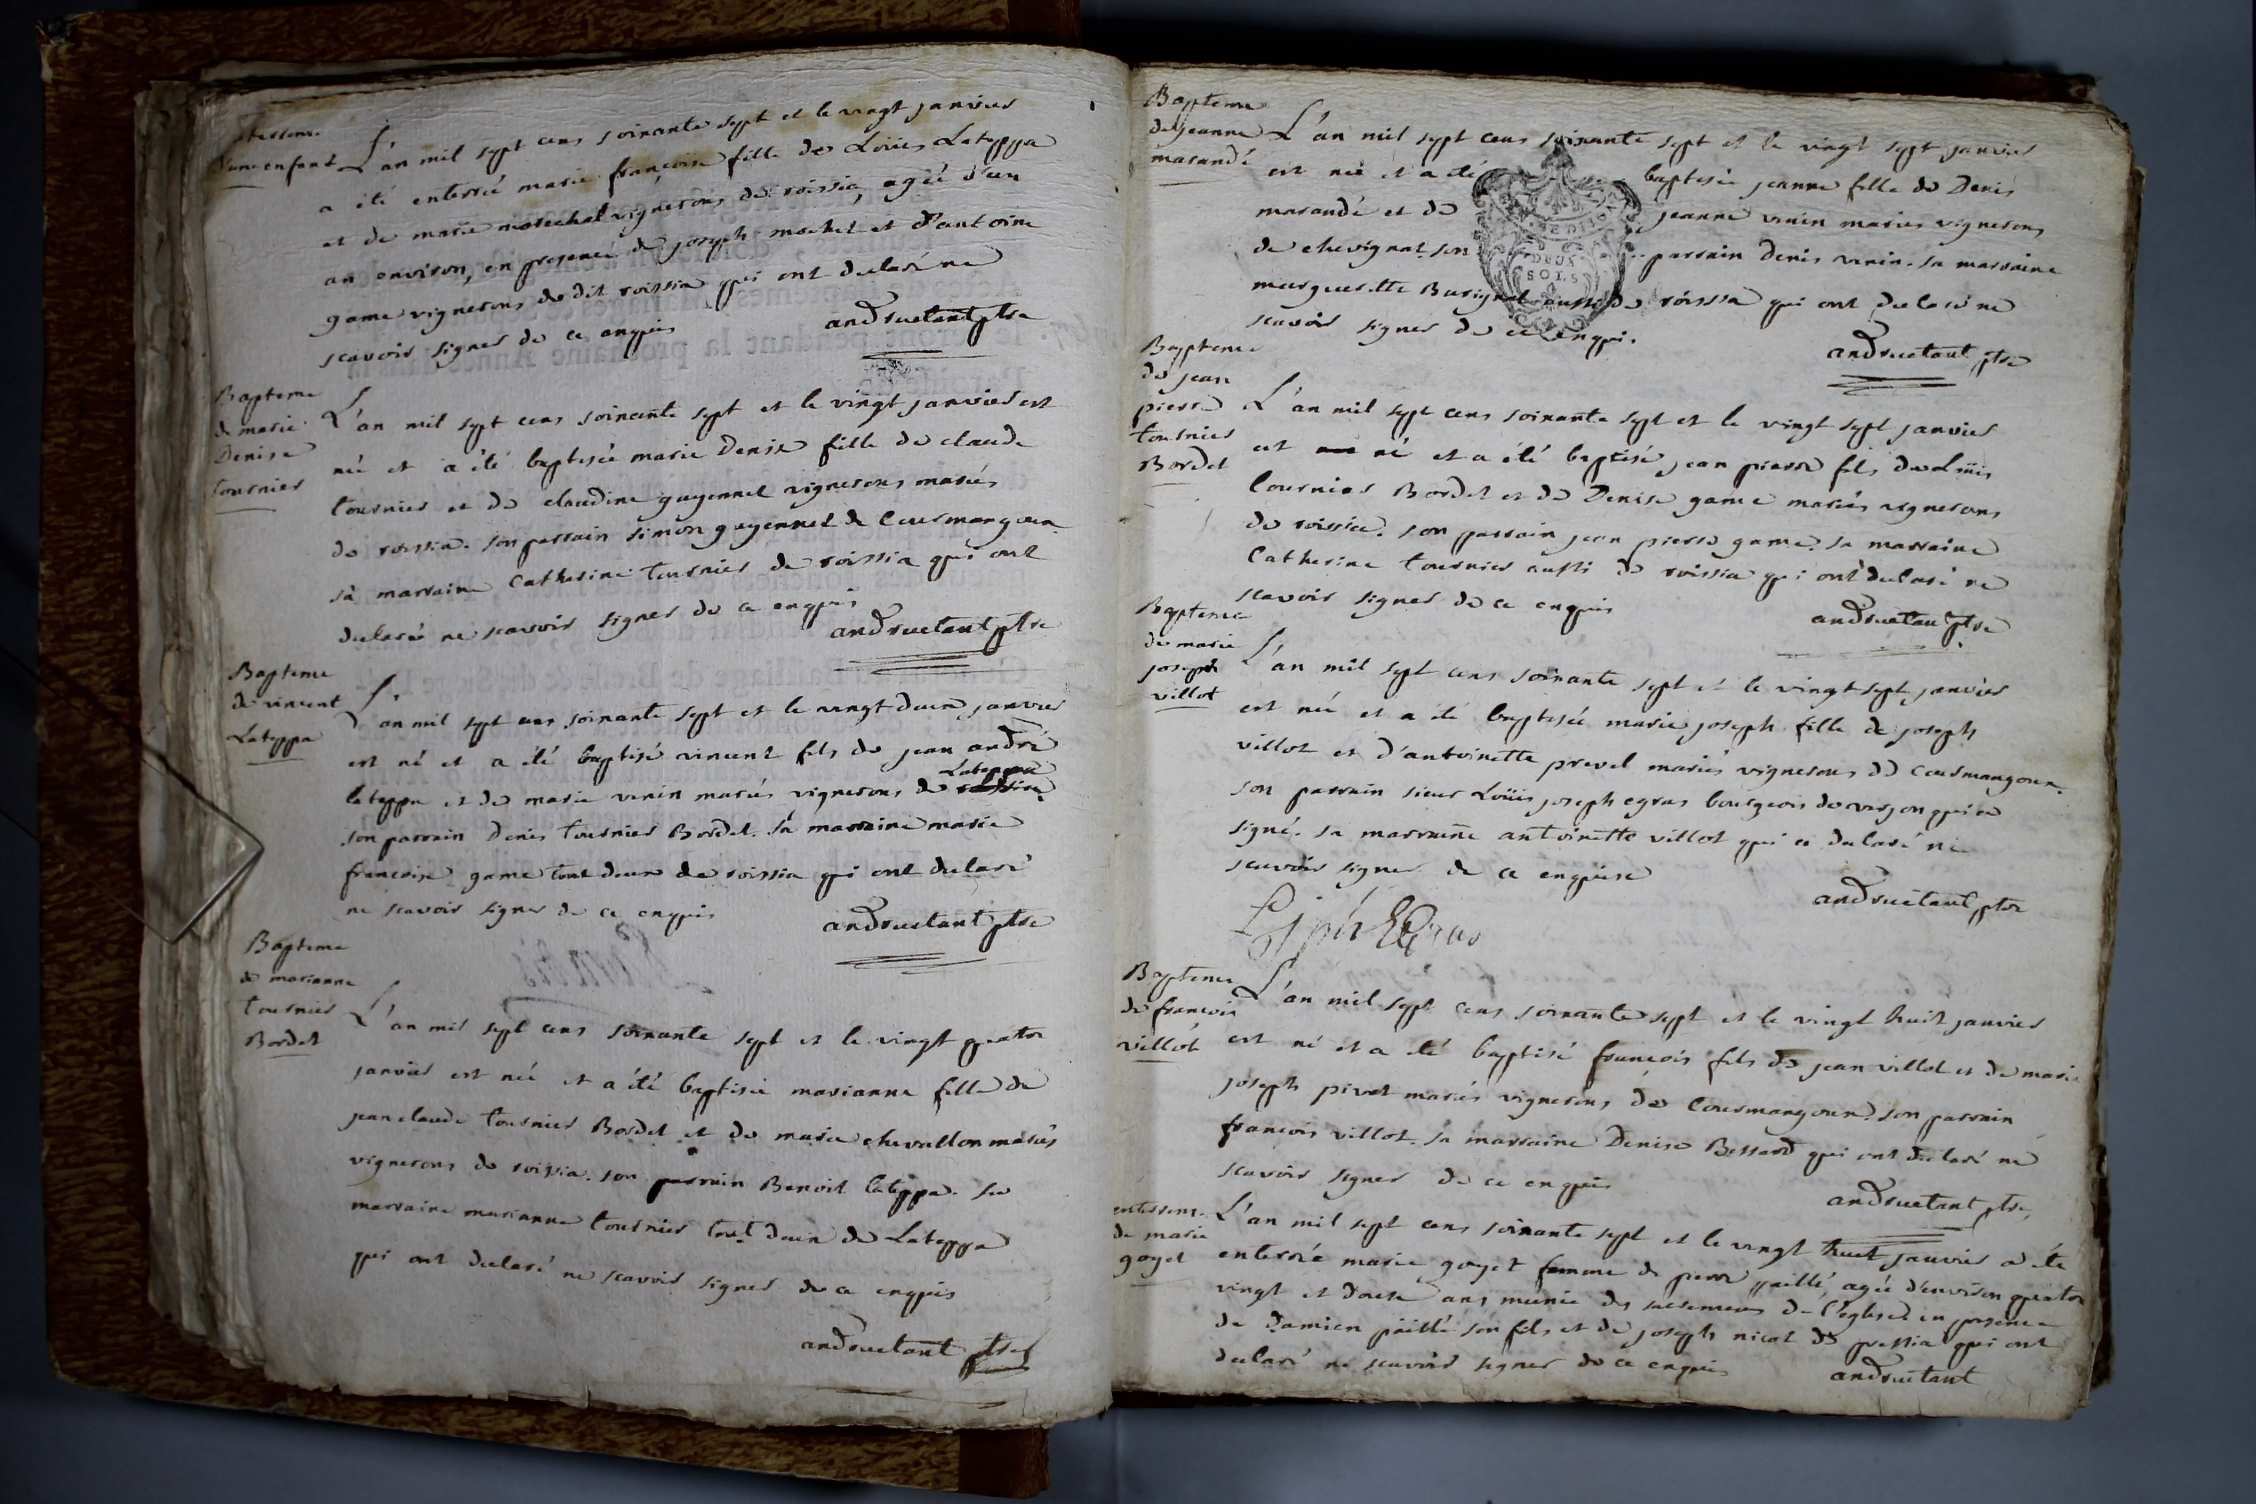 enterrem.
d'un enfant
L'an mil sept cens soixante sept et le vingt janvier
a été enterrée marie françoise fille de Loüis Lateppa
et de marie marechal vignerons de roissia, agée d'un
an environ, en presence de joseph mochet et d'antoine
game vignerons dudit roissia qui ont declaré ne
scavoir signer de ce enquis
andruetant ptre
Bapteme
de marie
Denise
tournier
L'an mil sept cens soixante sept et le vingt janvier est
née et a été baptisée marie Denise fille de claude
tournier et de claudine guyennet vignerons mariés
de roissia. son parrain simon guyennet de Cousmangoux
sa marraine Catherine tournier de roissia qui ont
declaré ne scavoir signer de ce enquis
andruetant ptre
Bapteme
de vincent
Lateppa
L'an mil sept cens soixante sept et le vingt deux janvier
est né et a été baptisé vincent fils de jean andré
lateppa et de marie venin mariés vignerons de
Lateppa
son parrain Denis tournier Bordet. sa marraine marie
francoise game tout deux de roissia qui ont declaré
ne scavoir signer de ce enquis
andruetant ptre
Bapteme
de marianne
tournier
Bordet
L'an mil sept cens soixante sept et le vingt quatre
janvier est née et a été baptisée marianne fille de
jean claude tournier Bordet et de marie chevallon mariés
vignerons de roissia. son parrain Benoit lateppa. sa
marraine marianne tournier tout deux de Lateppa
qui ont declaré ne scavoir signer de ce enquis
andruetant ptre
Bapteme
de jeanne
marandé
L'an mil sept cens soixante sept et le vingt sept janvier
est née et a été baptisée jeanne fille de Denis
marandé et de jeanne venin mariés vignerons
de chevignat. son parrain Denis venin. sa marraine
marguerette Burignat aussi de roissia qui ont declaré ne
scavoir signer de ce enquis.
DEUX
SOLS
andruetant ptre
Bapteme
de jean
pierre
tournier
Bordet
L'an mil sept cens soixante sept et le vingt sept janvier
est né et a été baptisé jean pierre fils de Loüis
tournier Bordet et de Denise game mariés vignerons
de roissia. son parrain jean pierre game. sa marraine
Catherine tournier aussi de roissia qui ont declaré ne
scavoir signer de ce enquis
andruetan ptre
Bapteme
de marie
joseph
villot
L'an mil sept cens soixante sept et le vingt sept janvier
est née et a été baptisée marie joseph fille de joseph
villot et d'antoinette prevel mariés vignerons de Cousmangoux.
son parrain sieur Loüis joseph egras bourgeois de verjon qui a
signé. sa marraine antoinette villot qui a declaré ne
scavoir signer de ce enquise
andruetant ptre
Bapteme
de francois
villot
L'an mil sept cens soixante sept et le vingt huit janvier
est né et a été baptisé françois fils de jean villot et de marie
joseph pivet mariés vignerons de Cousmangoux. son parrain
francois villot. sa marraine Denise Bessard qui ont declaré ne
scavoir signer de ce enquis
andruetant ptre
enterrem.
de marie
goyet
L'an mil sept cens soixante sept et le vingt huit janvier a été
enterrée marie goyet femme de pierre paillé, agée d'environ quatre
vingt et douze ans munie des sacremens de l'eglise en presence
de Damien paillé son fils et de joseph nicot de pressia qui ont
declaré ne scavoir signer de ce enquis
andruetant